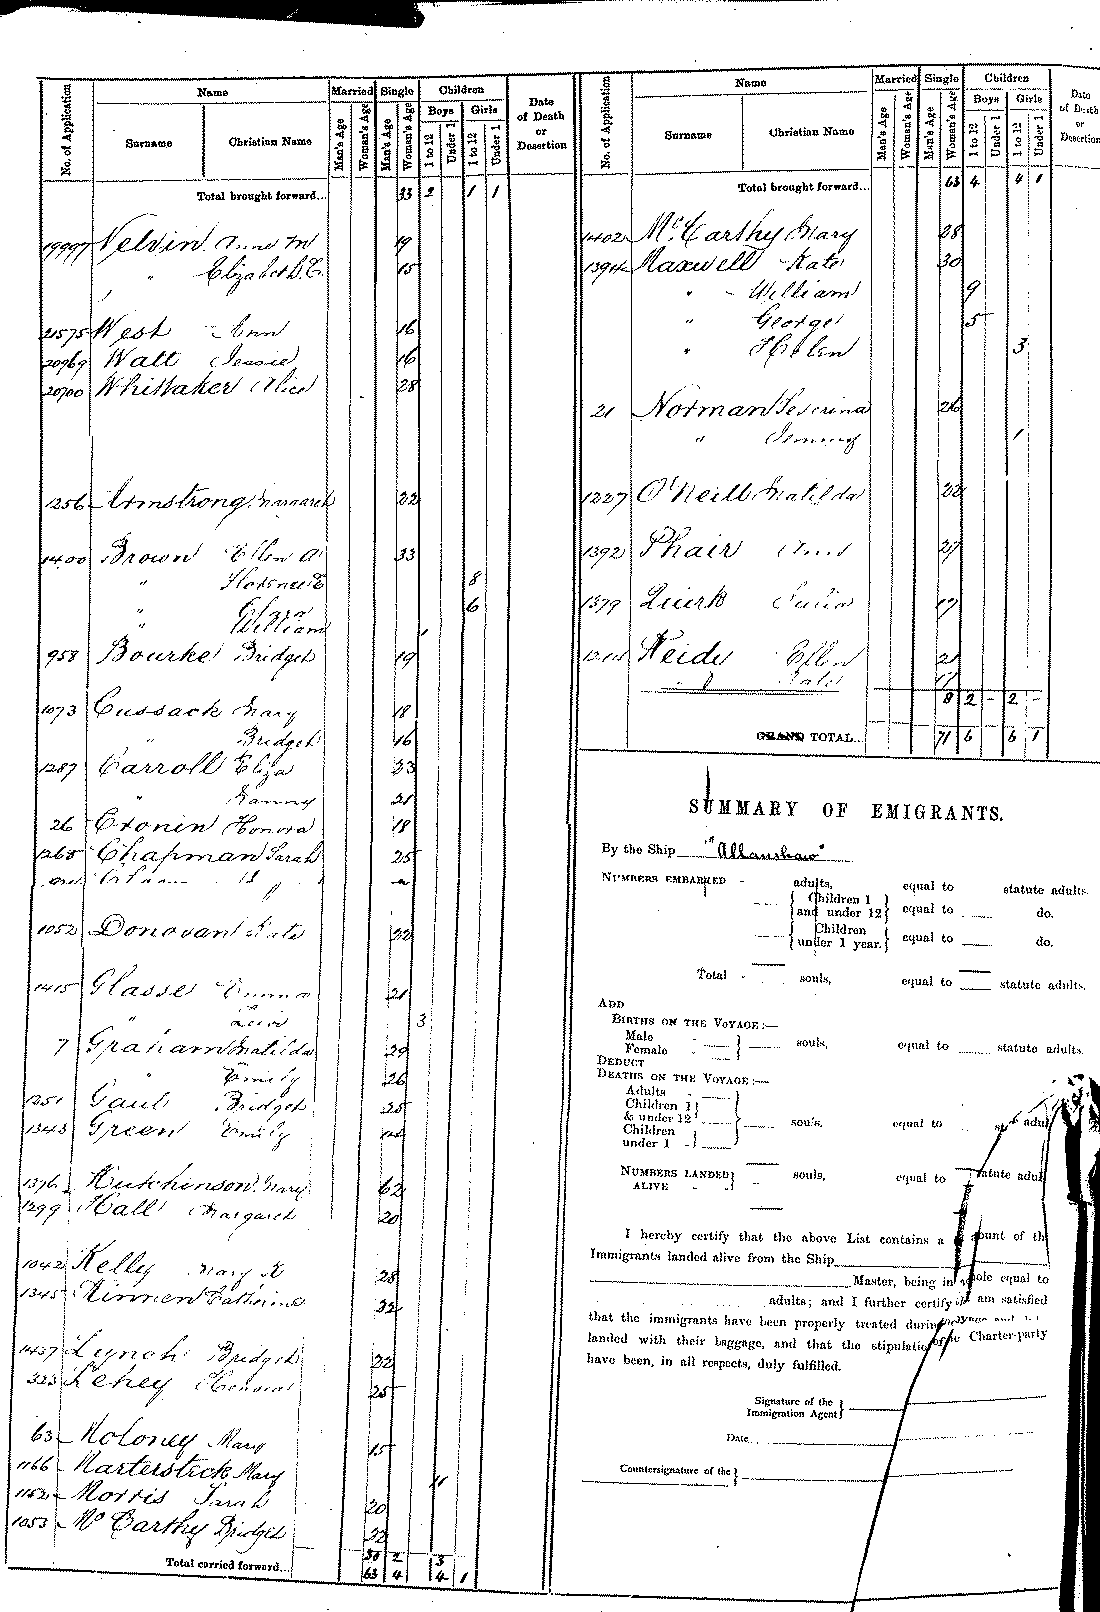 No. of Application Name Married Single Children Date of Death or Desertion
Surname Christian Name Man's Age Woman's Age Man's Age Woman's Age Boys Girls
1 to 12 Under 1 1 to 12 Under 1
Total brought forward... 33 2 1 1
19997 Nelvin Anne M 19
" Elizabeth E. 15
21575 West Ann 16
20969 Watt Jessie 16
20700 Whittaker Alice 28
1256 Armstrong Margaret 22
1400 Brown Ellen A 33
" Florence E 8
" Clara 6
" William 1
958 Bourke Bridget 19
1073 Cussack Mary 18
" Bridget 16
1287 Carroll Eliza 23
" Fanny 21
26 Cronin Honora 18
1265 Chapman Sarah 25
1052 Donovan Kate 22
1415 Glasse Emma 21
" 3
7 Graham Matilda 29
" Emily 26
1251 Gaul Bridget 25
1343 Green Emily
1376 Hutchinson Mary 62
1299 Hall Margaret 20
1042 Kelly Mary K 28
1345 Kinnen Catherine 22
1437 Lynch Bridget 22
323 Lehey Honora 25
63 Moloney Mary 15
1166 Marterstick Mary 11
1152 Morris Sarah 20
1053 Mc Carthy Bridget 22
30 2 3
Total carried forward... 63 4 4 1
No. of Application Name Married Single Children Date of Death or Desertion
Surname Christian Name Man's Age Woman's Age Man's Age Woman's Age Boys Girls
1 to 12 Under 1 1 to 12 Under 1
Total brought forward... 63 4 4 1
1402 Mc Carthy Mary 28
1394 Maxwell Kate 30
" William 9
" George 5
" Helen 3
21 Norman Severina 26
" Jemmy 1
1227 O'Neill Matilda 22
1392 Phair Ann 27
1379 Quirk Julia 17
Reidy Ellen 21
" Kate 17
8 2 - 2 -
GRAND TOTAL... 71 6 6 1
SUMMARY OF EMIGRANTS.
By the Ship "Allanshaw"
NUMBERS EMBARKED - adults, equal to statute adults.
Children 1 and under 12 equal to do.
Children under 1 year. equal to do.
Total - souls, equal to statute adults.
ADD
BIRTHS ON THE VOYAGE:—
Male
Female souls, equal to statute adults.
DEDUCT
DEATHS ON THE VOYAGE:—
Adults
Children 1 & under 12 souls, equal to
Children under 1
NUMBERS LANDED ALIVE souls, equal to
I hereby certify that the above List contains a
Immigrants landed alive from the Ship
Master, being in whole equal to
adults; and I further certify am satisfied
that the immigrants have been properly treated during
landed with their baggage, and that the Charter-party
have been, in all respects, duly fulfilled.
Signature of the Immigration Agent
Date
Countersignature of the